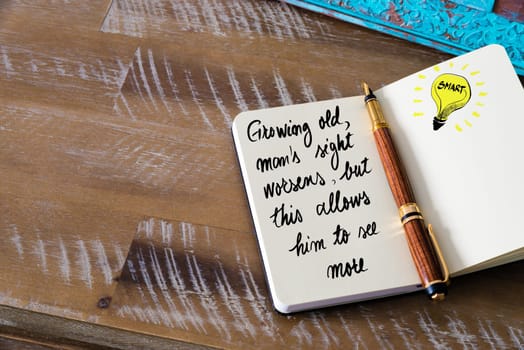 Growing old,
man's sight
worsens, but
this allows
him to see
more
SMART